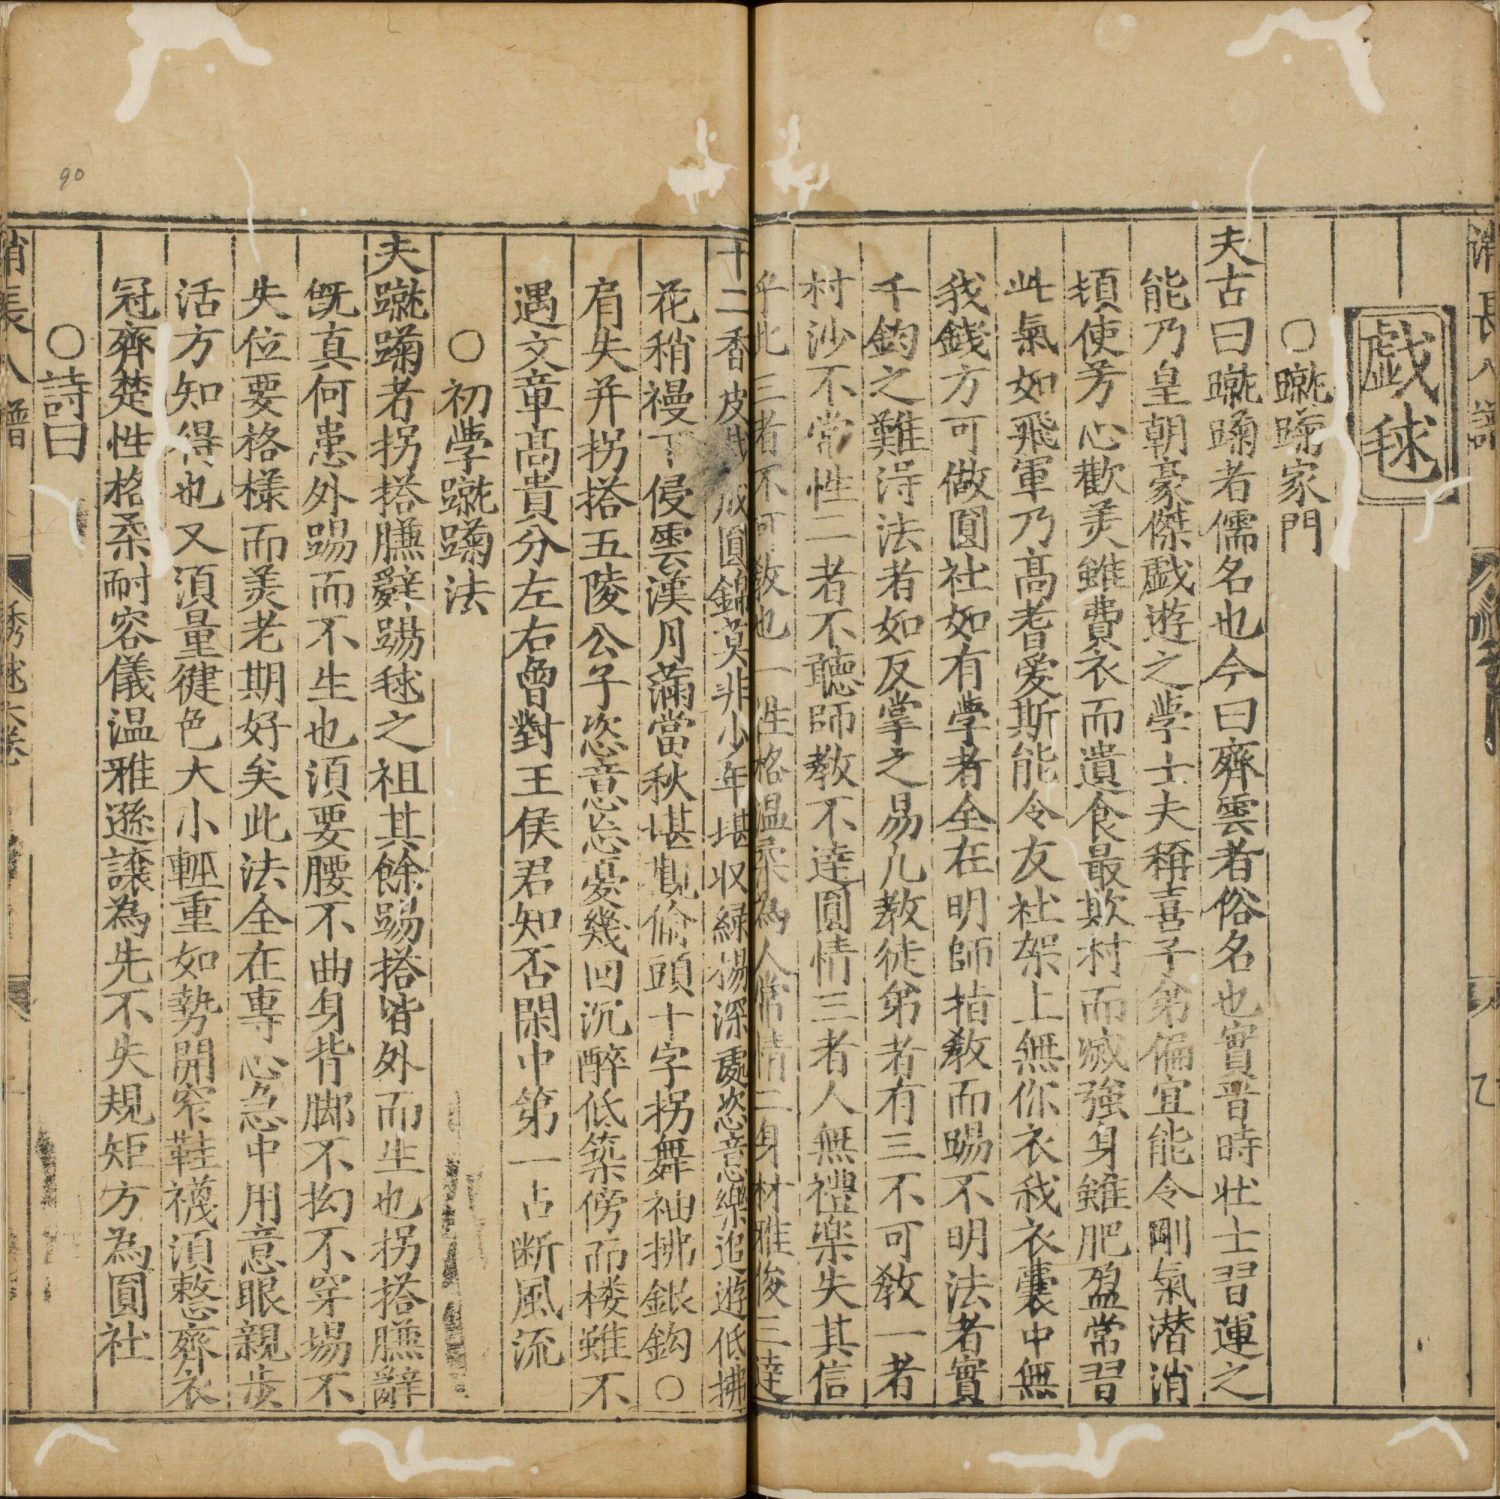 戯毬
○蹴踘家門
夫古曰蹴踘者儒名也今曰齊雲者俗名也實晋時壮士習運之
能乃皇朝豪傑戯遊之學士夫稱喜子弟偏宜能令剛氣潜消
頓使芳心歡美雖費衣而遺食最欺村而滅強身雖肥盈常習
此氣如飛軍乃高耆爱斯能令友社架上無你衣我衣囊中無
我錢方可做圓社如有學者全在明師指教而踢不明法者實
千鈞之難淂法者如反掌之易凢教徒弟者有三不可教一者
村沙不常性二者不聽師教不達圓情三者人無禮楽失其信
乎此三者不可教也一性格温柔為人常情二身材雅俊三達
十二香皮 成圓錦莫非少年堪収緑楊深處恣意樂追遊低拂
花稍褪下侵雲漢月滿當秋堪觀偷頭十字拐舞袖拂銀鈎○
肩尖并拐搭五陵公子恣意忘憂幾回沉醉低築傍而楼雖不
遇文章高貴分左右曾對王侯君知否閑中第一占断風流
○初學蹴踘法
夫蹴踘者拐搭臁辭踢毬之祖其餘踢搭皆外而生也拐搭臁辭
旣真何患外踢而不生也湏要腰不曲身背脚不拗不穿場不
失位要格樣而美老期好矣此法全在專心急中用意眼親步
活方知得也又湏量健色大小輕重如勢開窄鞋襪湏整齊衣
冠齊楚性格柔耐容儀温雅遜讓為先不失規矩方為圓社
○詩曰